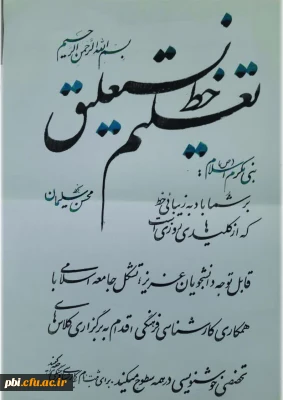 بسم الله الرحمن الرحیم
تعلیم خط نستعلیق
نبی مکرم اسلام (ص):
بر شما باد به زیبایی خط
که از کلیدهای روزی است
محسن سلیمان
قابل توجه دانشجویان عزیز: تشکل جامعه اسلامی با
همکاری کارشناسی فرهنگی اقدام به برگزاری کلاس‌های
تخصصی خوشنویسی در همه سطوح میکند. برای ثبت نام
pbi.cfu.ac.ir